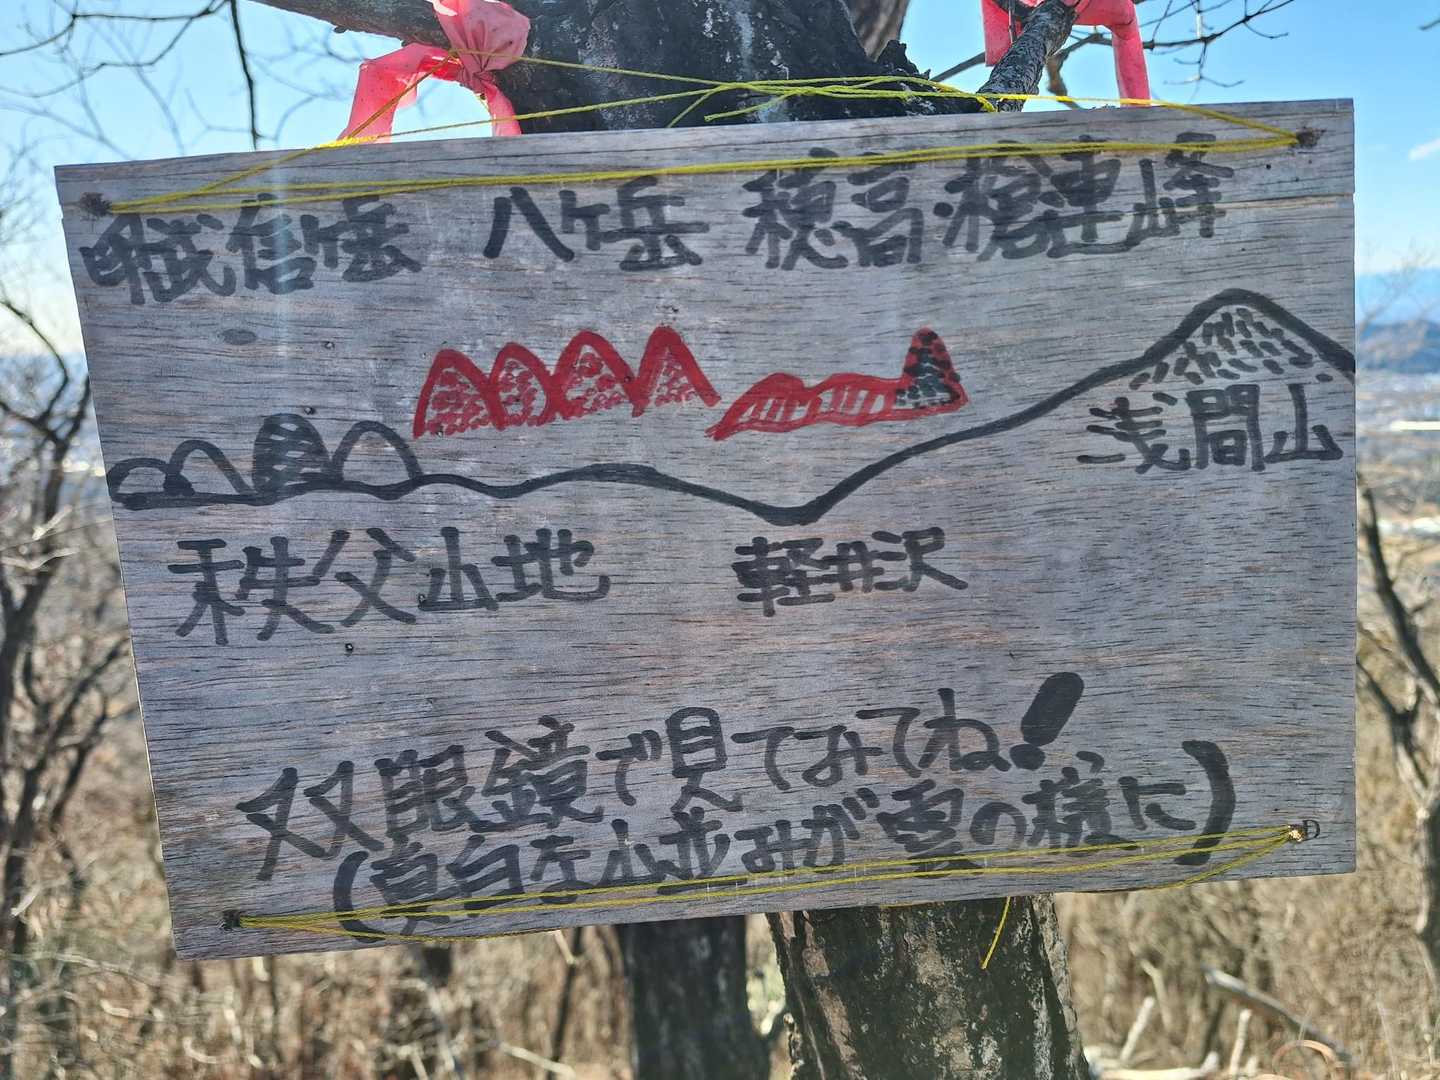 甲武信ヶ岳 八ヶ岳 穂高・槍連峰
浅間山
秩父山地 軽井沢
双眼鏡で見てみてね!
(真白な山並みが雲の様に)